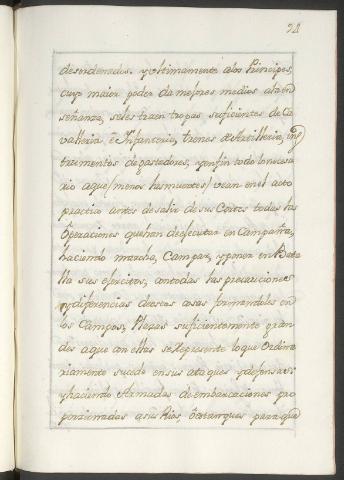 desordenados. y ultimamente alos Principes,
cuyo maior poder da mejores medios ala en
señanza, seles traen tropas suficientes de Ca
valleria, è Infanteria, trenes de Artilleria, ins
trumentos de gastadores, yenfin todo lo necesa
rio aque (menos las muertes) vean en el acto
practico antes de salir de sus Cortes todas las
Operaciones que han de executar en Campaña,
haciendo marchar, Campar, y poner en Bata
lla sus exercitos, con todas las precauciones
y diferencias de estas cosas formandoles en
los Campos, Plazas suficientemente gran
des a que con ellas se Represente lo que Ordina
riamente sucede en sus ataques y defensas
y haciendo Armadas de embarcaciones pro
porcionadas a sus Rios, ò estanques para que